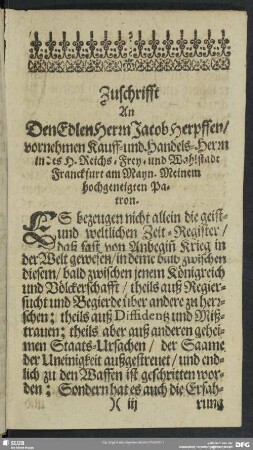 Zuschrifft
An
Den Edlen Herrn Jacob Herpffen/
vornehmen Kauff-und Handels-Herrn
in des H. Reichs, Frey- und Wahlstadt
Franckfurt am Mayn. Meinem
hochgeneigten Pa-
tron.
ES bezeugen nicht allein die geist-
und weltlichen Zeit-Register/
daß fast von Anbegiñ Krieg in
der Welt gewesen/ in deme bald zwischen
diesem/ bald zwischen jenem Königreich
und Völckerschafft/ theils auß Regier-
sucht und Begierde über andere zu herr-
schen; theils auß Diffidentz und Miß-
trauen; theils aber auß anderen gehei-
men Staats-Ursachen/ der Saame
der Uneinigkeit außgestreuet/ und end-
lich zu den Waffen ist geschritten wor-
den; Sondern hat es auch die Erfah-
)( iij rung
SLUB
DFG